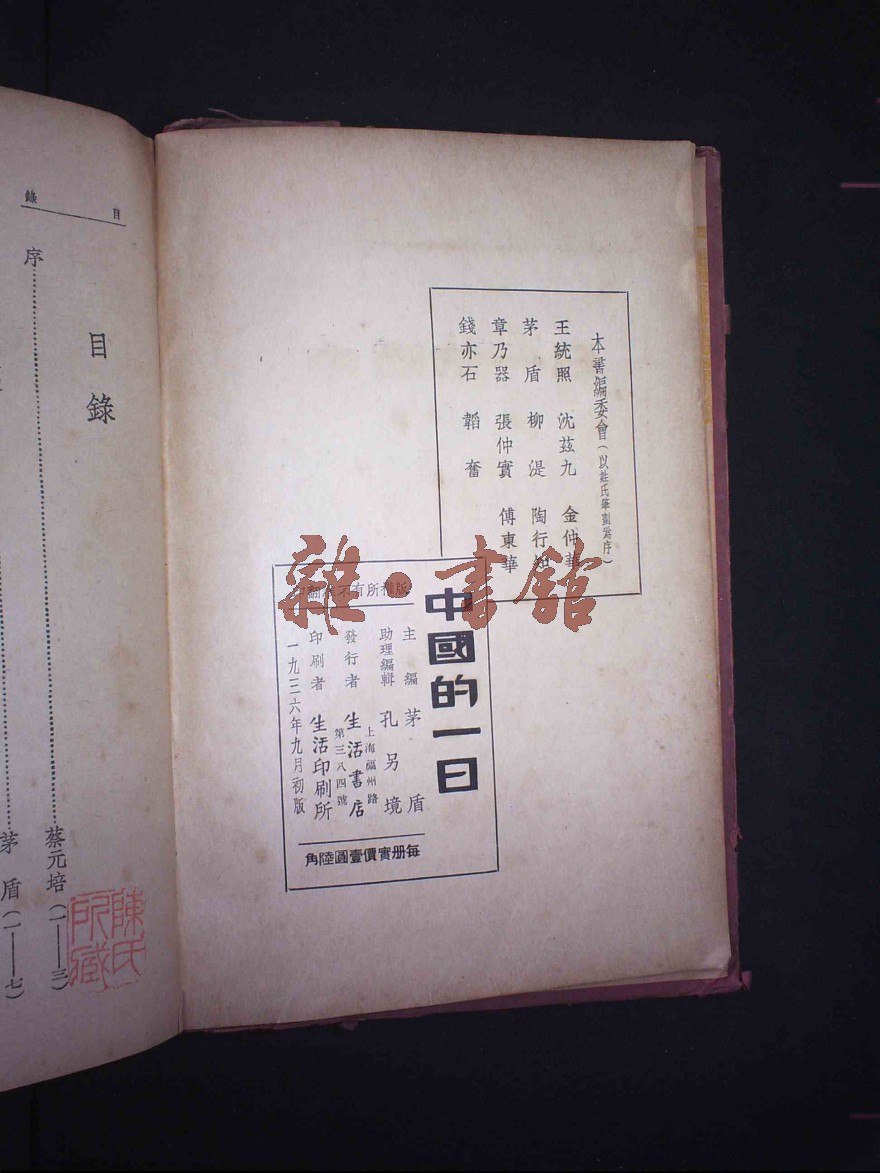 本書編委會（以姓氏筆劃爲序）
王統照　沈茲九　金仲華
茅　盾　柳　湜　陶行知
章乃器　張仲實　傅東華
錢亦石　韜　奮
中國的一日
版權所有不准翻印
主編　茅盾
助理編輯　孔另境
上海福州路
發行者　生活書店
第三八四號
印刷者　生活印刷所
一九三六年九月初版
每册實價壹圓陸角
目錄
目錄
序……蔡元培（一——三）
茅盾（一——七）
陳氏
所藏
雜·書館